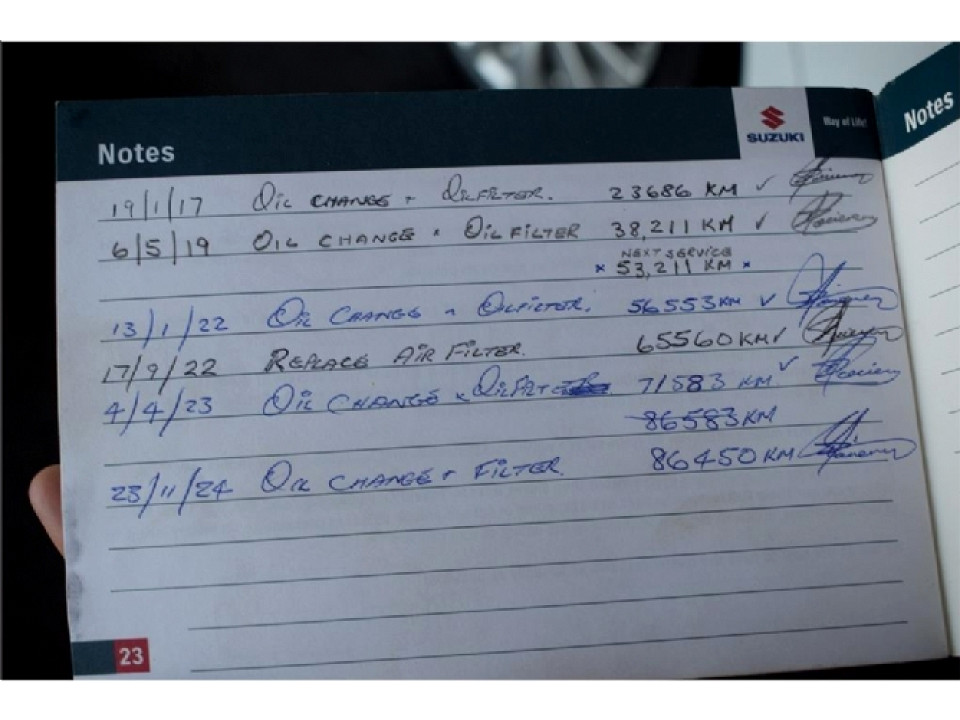 Notes
SUZUKI
Way of Life!
Notes
19/1/17 OIL CHANGE + OILFILTER. 23686 KM ✓
6/5/19 OIL CHANGE + OIL FILTER 38,211 KM ✓
NEXT SERVICE
× 53,211 KM ×
13/1/22 OIL CHANGE + OILFILTER. 56553 KM ✓
17/9/22 REPLACE AIR FILTER. 65560 KM ✓
4/4/23 OIL CHANGE × OILFILTER 71583 KM ✓
86583 KM
23/11/24 OIL CHANGE + FILTER. 86450 KM
23